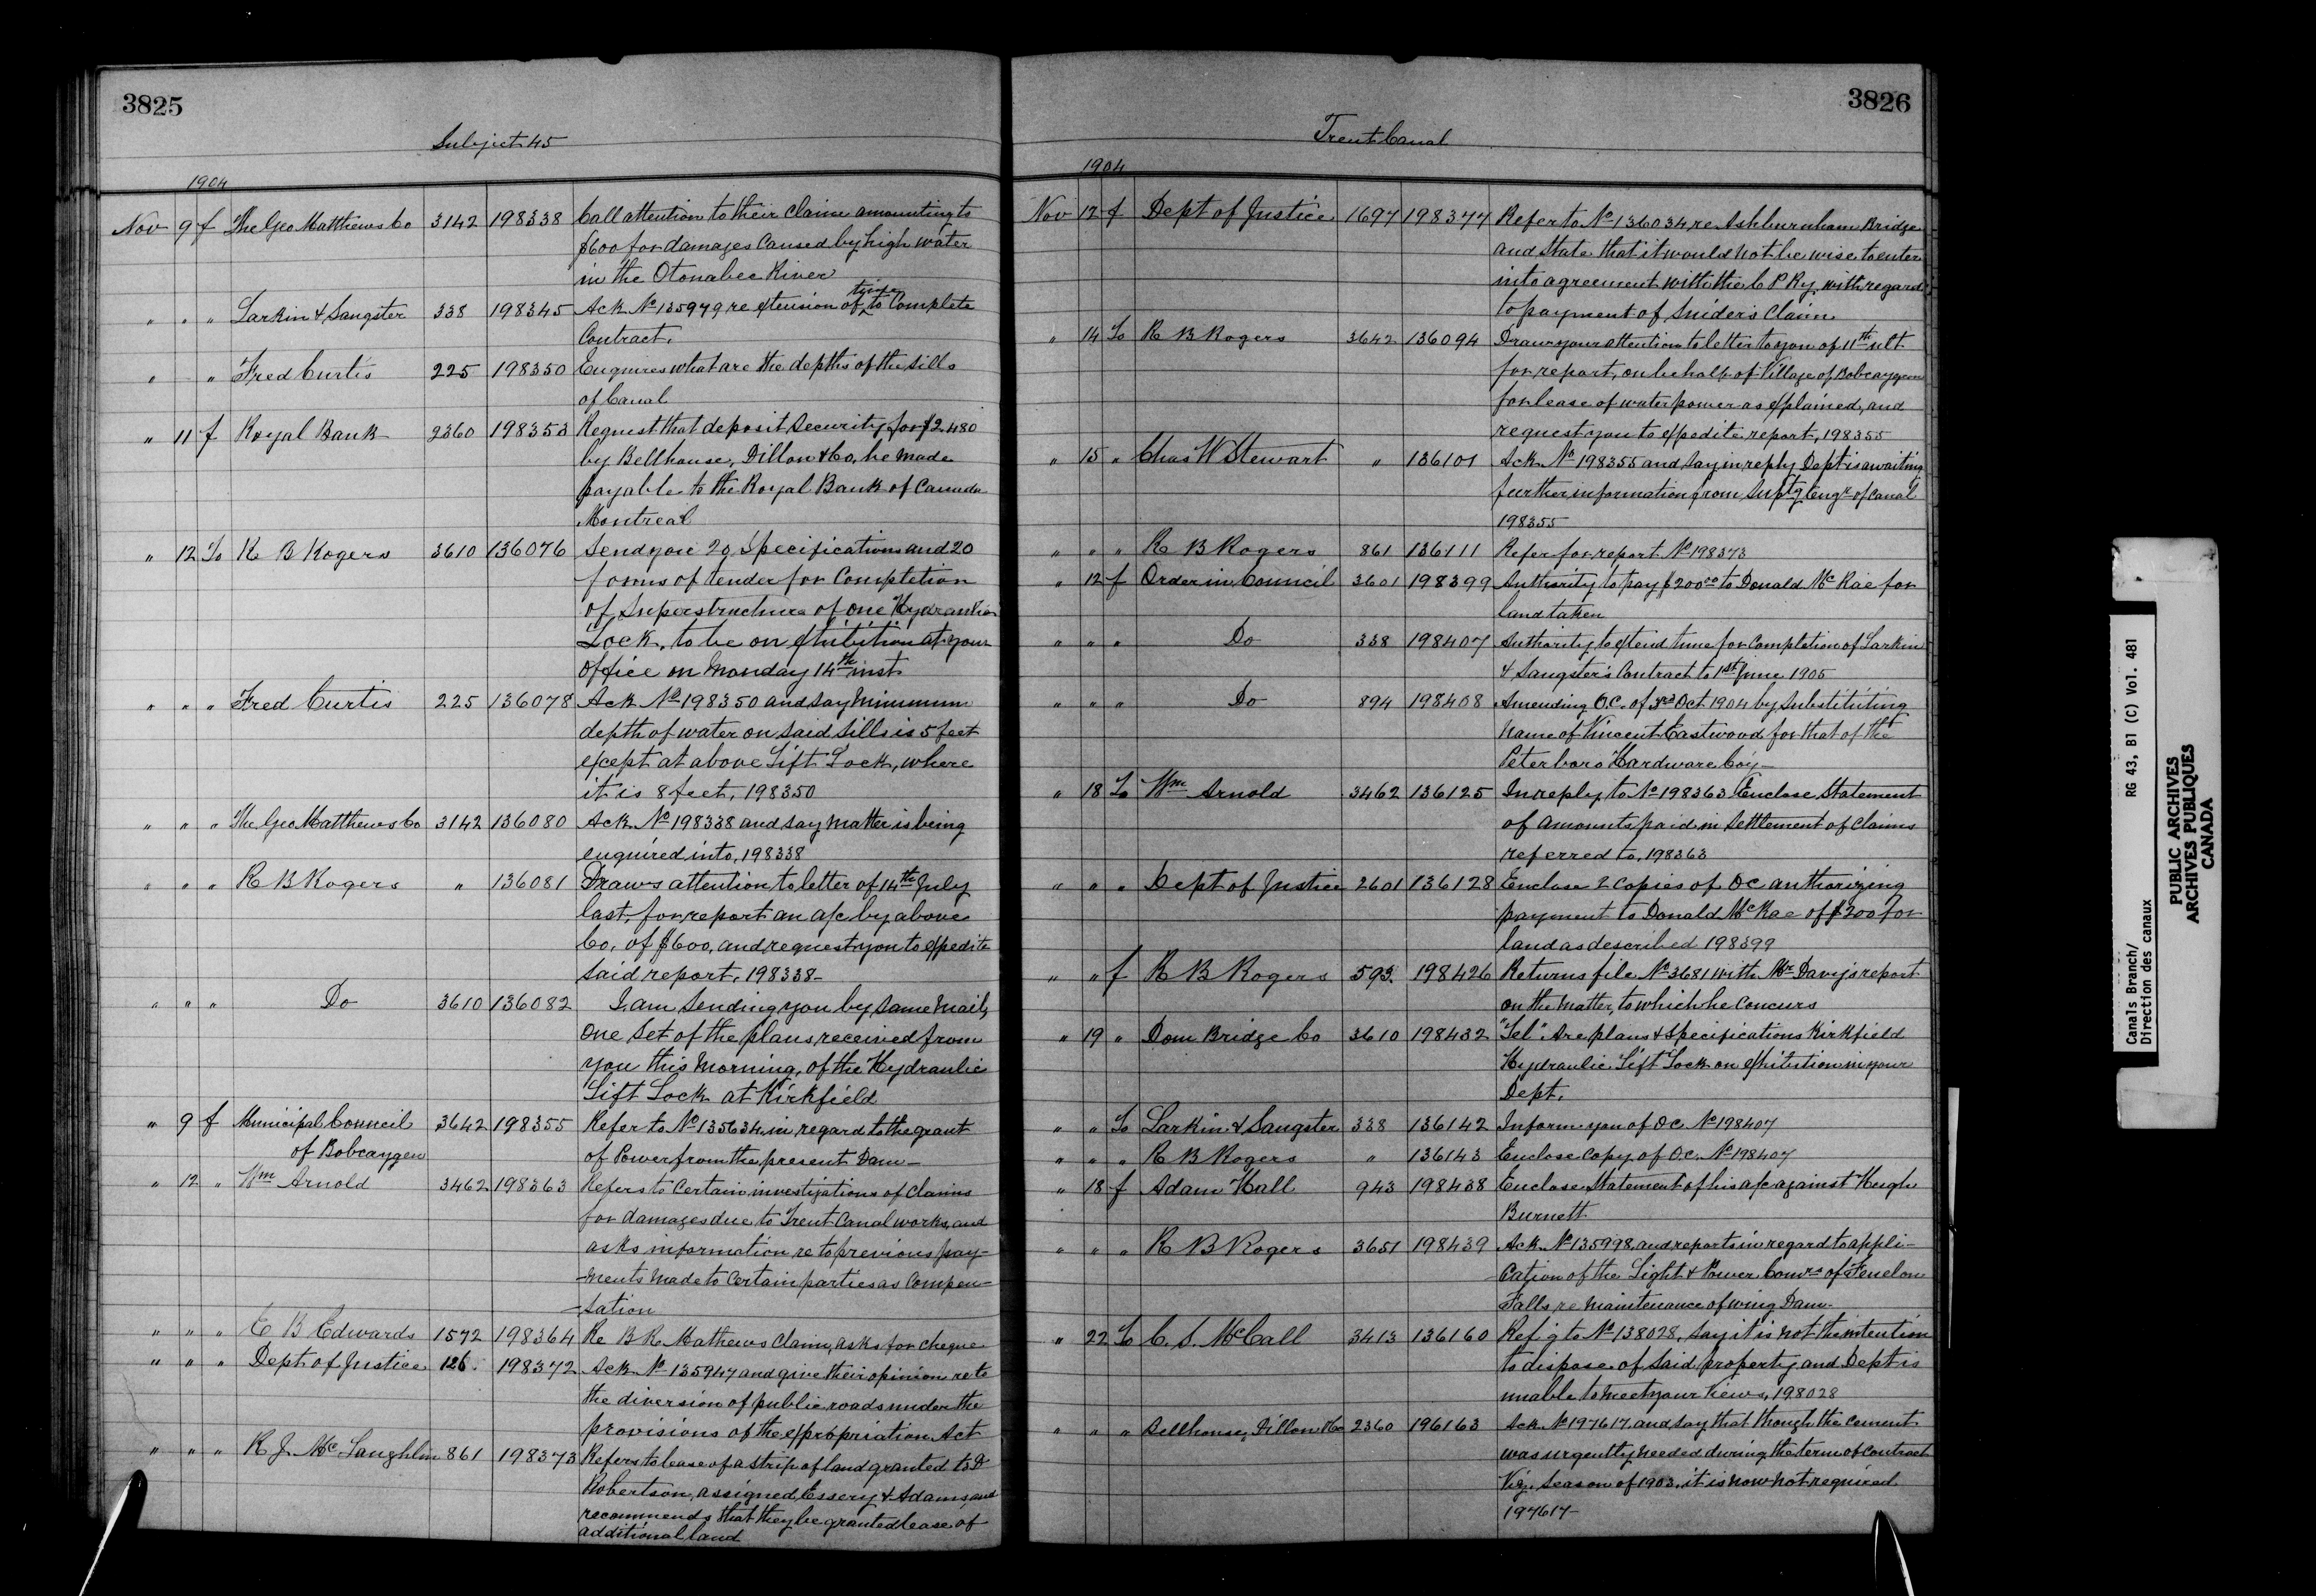 3825
Subject 45
1904
Nov 9 f The Geo Matthews Co 3142 198338 Call attention to their claim amounting to
$600 for damages caused by high water
in the Otonabee River
" " " Larkin & Sangster 338 198345 Ack No 135979 re extension of time to Complete
Contract.
" " Fred Curtis 225 198350 Enquires what are the depths of the sills
of Canal
" 11 f Royal Bank 2360 198353 Request that deposit security for $2480
by Bellhouse, Dillon & Co, be made
payable to the Royal Bank of Canada
Montreal
" 12 To R B Rogers 3610 136076 Send you 20 Specifications and 20
forms of tender for Completion
of Superstructure of one Hydraulic
Lock, to be on exhibition at your
office on Monday 14th inst
" " " Fred Curtis 225 136078 Ack No 198350 and say minimum
depth of water on said sills is 5 feet
except at above Lift Lock, where
it is 8 feet, 198350
" " " The Geo Matthews Co 3142 136080 Ack No 198338 and say matter is being
enquired into, 198338
" " " R B Rogers " 136081 Draws attention to letter of 14th July
last, for report an a/c by above
Co, of $600, and request you to expedite
said report, 198338-
" " " Do 3610 136082 I am sending you by same mail,
one set of the plans received from
you this morning, of the Hydraulic
Lift Lock at Kirkfield
" 9 f Municipal Council 3642 198355 Refer to No 135634, in regard to the grant
of Bobcaygen of Power from the present Dam-
" 12 " Wm Arnold 3462 198363 Refers to Certain investigations of claims
for damages due to Trent Canal works, and
asks information re to previous pay-
-ments made to Certain parties as Compen-
-sation
" " " E B Edwards 1572 198364 Re B R Mathews claim, asks for cheque
" " " Dept of Justice 126. 198372 Ack No 135947 and give their opinion re to
the diversion of public roads under the
provisions of the expropriation Act
" " " R J. Mc Laughlin 861 198373 Refers to lease of a strip of land granted to D
Robertson, assigned, Essery & Adams, and
recommends that they be granted lease of
additional land
3826
Trent Canal
1904
Nov 12 f Dept of Justice 1697 198377 Refer to No 136034, re Ashburnham Bridge
and State that it would not be wise to enter
into agreement with the C P Ry. with regard
to payment of Snider's Claim
" 14 To R B Rogers 3642 136094 Draw your attention to letter to you of 11th ult
for report, on behalf of Village of Bobcaygeon
for lease of water power as explained, and
request you to expedite report, 198355
" 15 " Chas W Stewart " 136101 Ack No 198355 and say in reply Dept is awaiting
further information from Suptg Engr of Canal
198355
" " " R B Rogers 861 136111 Refer for report No 198373
" 12 f Order in Council 3601 198399 Authority to pay $200.00 to Donald McRae for
land taken
" " " Do 338 198407 Authority to extend time for Completion of Larkin
& Sangster's Contract to 1st June 1905
" " " Do 894 198408 Amending O.C. of 3rd Oct 1904 by substituting
name of Vincent Eastwood for that of the
Peterboro Hardware Coy-
" 18 To Wm Arnold 3462 136125 In reply to No 198363 Enclose Statement
of amounts paid in settlement of claims
referred to, 198363
" " " Dept of Justice 2601 136128 Enclose 2 copies of OC authorizing
payment to Donald McRae of $200 for
land as described 198399
" " f R B Rogers 593. 198426 Returns file No 3681 with Mr Davy's report
on the matter, to which he concurs
" 19 " Dom Bridge Co 3610 198432 "Tel" Are plans & specifications Kirkfield
Hydraulic Lift Lock on exhibition in your
Dept.
" " To Larkin & Sangster 338 136142 Inform you of OC. No 198407
" " " R B Rogers " 136143 Enclose copy of O.C. No 198407
" 18 f Adam Hall 943 198438 Enclose Statement of his a/c against Hugh
Burnett
" " " R B Rogers 3651 198439 Ack No 135998, and reports in regard to appli-
-cation of the Light & Power Comrs of Fenelon
Falls re maintenance of wing Dam-
" 22 To C. S. McCall 3413 136160 Ref'g to No 138028, say it is not the intention
to dispose of said property and Dept is
unable to meet your views, 198028
" " " Bellhouse, Dillon & Co 2360 196163 Ack No 197617 and say that though the cement
was urgently needed during the term of contract
Viz. season of 1903, it is now not required
197617-
Canals Branch/
Direction des canaux
RG 43, B1 (C) Vol. 481
PUBLIC ARCHIVES
ARCHIVES PUBLIQUES
CANADA